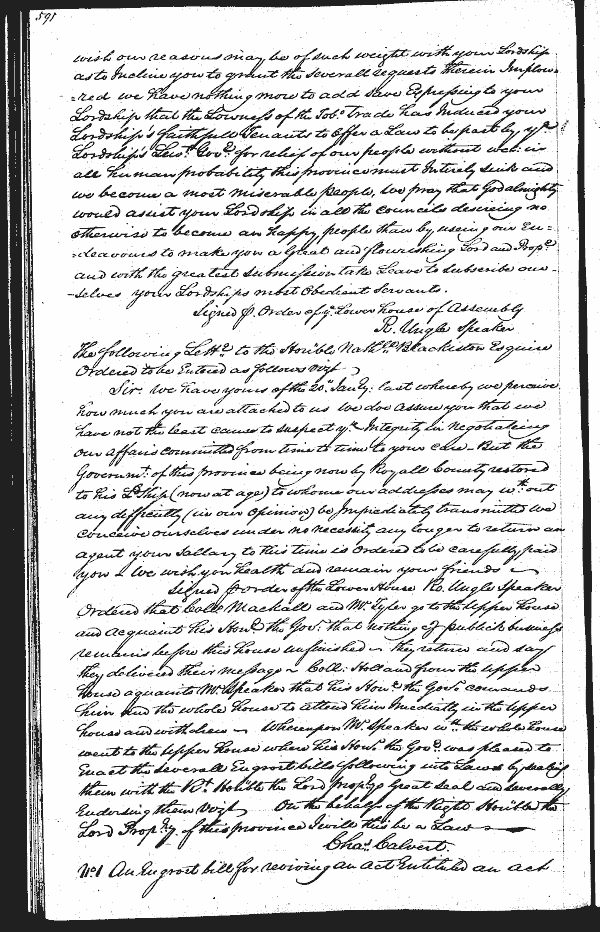 591
wish our reasons may be of such weight with your Lordship
as to Incline you to grant the severall requests therein Implow-
-red we have nothing more to add save Expressing to your
Lordship that the Lowness of the Tobo Trade has Induced your
Lordship's faithfull Tenants to Offer a Law to be past by yr
Lordship's Leut Govr for relief of our people without wch in
all human probabitity this province must Intirely sink and
we become a most miserable people, We pray that God almighty
would assist your Lordship in all the councils desireing no
otherwise to become an happy people than by useing our En=
-deavours to make you a Great and flourishing Lord and Propr
and with the greatest submission take Leave to subscribe our-
-selves your Lordships most Obedient Servants.
Signed p. Order of ye Lower house of Assembly
R. Ungle Speaker
The following Lettr to the Honble Nathll Blackiston Esquire
Ordered to be Entered as follows vizt
Sir. We have yours of the 20th Janry: last whereby we perceive
how much you are attached to us we doe assure you that we
have not the least cause to suspect yr Integrity in Negotiateing
our affairs committed from time to time to your care - But the
Governmt: of this province being now by Royall bounty restored
to his Ldship (now at age) to whome our addresses may wth out
any difficulty (in our Opinion) be Immediately transmitted we
conceive ourselves under no necessity any longer to return an
agent your Sallary to this time is Ordered to be carefully paid
you - We wish you health and remain your friends
Signed p order of the Lower House Ro. Ungle Speaker
Ordered that Coll Mackall and Mr. Tyler go to the Upper House
and acquaint his Honr. the Govr: that nothing of publick business
remains before this house unfinished - they return and say
they delivered their message - Coll: Holland from the upper
house aquaints Mr Speaker that his Honr. the Govr comands
him and the whole house to attend him Imediatly in the upper
house and withdrew - Whereupon Mr. Speaker wth the whole house
went to the upper House where his Honr. the Govr. was pleased to
Enact the severall Engrost bills following into Laws by sealing
them with the Rt. Honble the Lord Proprys Great Seal and severally
Endorsing them vizt On the behalf of the Right Honble the
Lord Propry. of this province I will this be a Law
Chas. Calvert.
No1 An Engrost bill for reviving an act Entituled an act